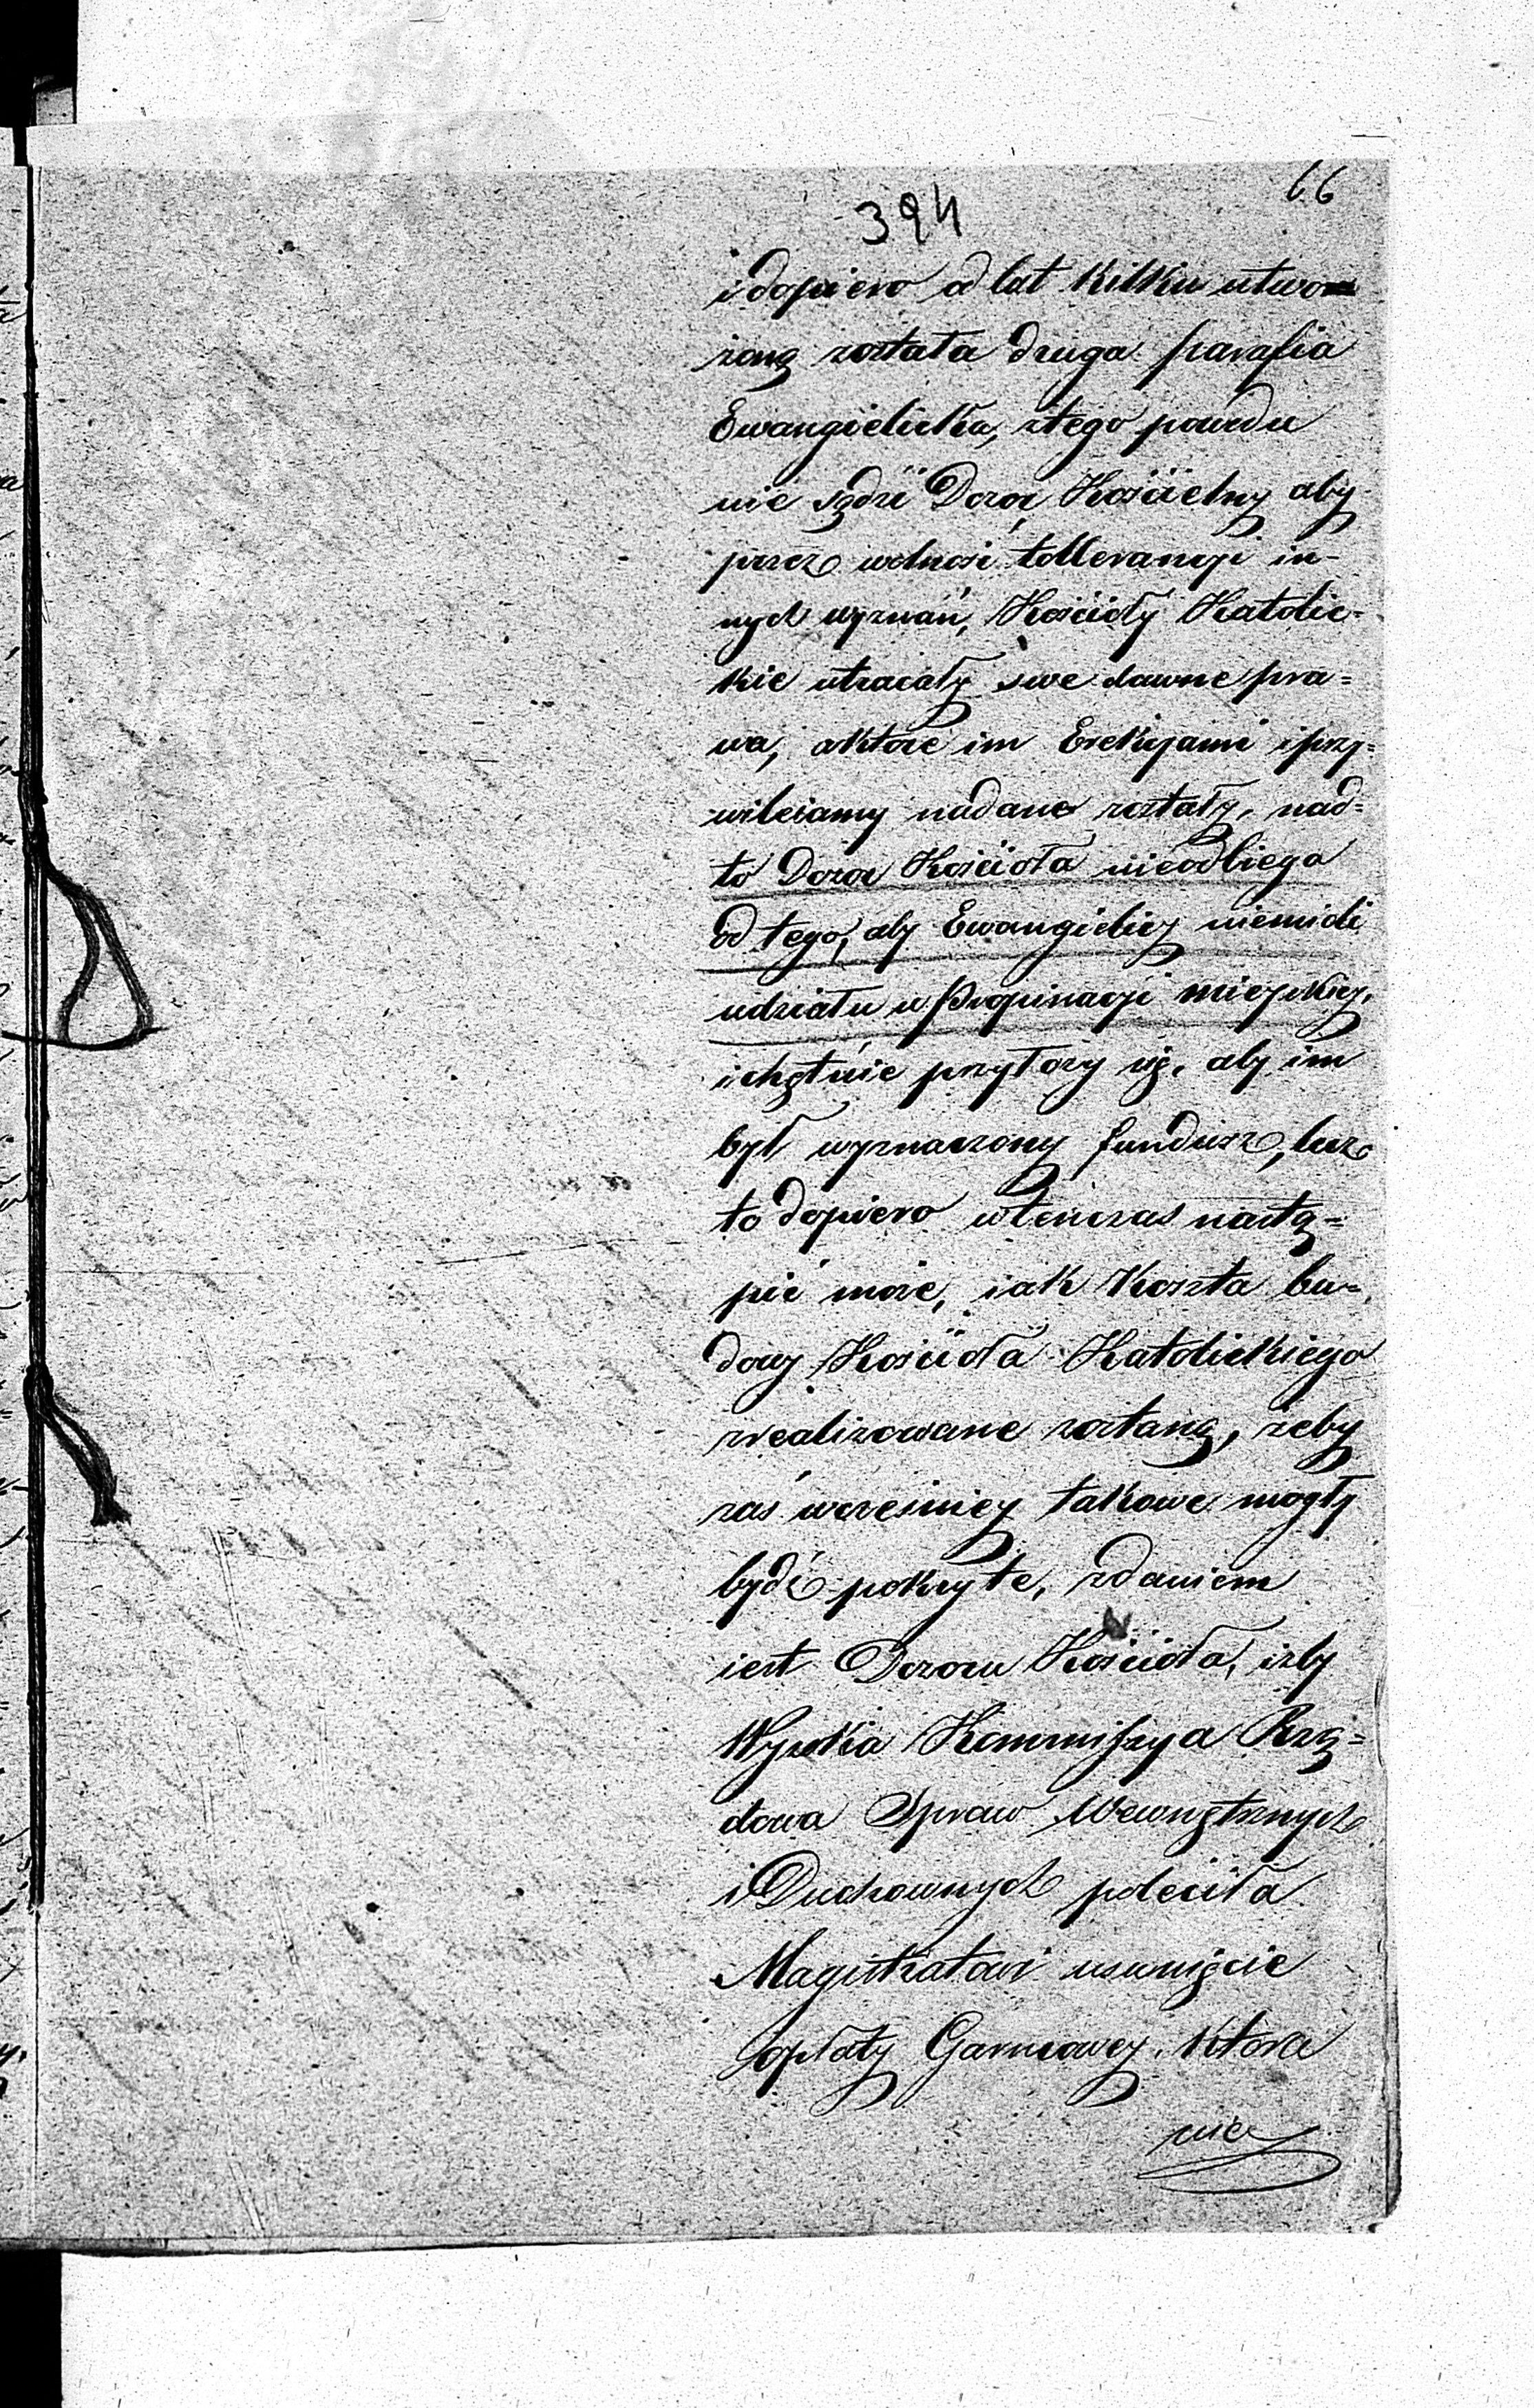 66
394
i dopiero od lat kilku utwo=
rzoną została druga parafia
Ewangielicka, z tego powodu
nie sądzi Dozor Kościelny aby
przez wolność tollerancyi in-
nych wyznań, Kościoły Katolic=
kie utracały swe dawne pra=
wa, a które im Erekcyjami i przy=
wileiamy nadane zostały, nad=
to Dozor Kościoła nieodbiega
od tego, aby Ewangielicy niemieli
udziału w Propinacyi mieyskiey,
i chętnie przyłoży się, aby im
był wyznaczony fundusz, lecz
to dopiero wtenczas nastą=
pić może, iak koszta bu=
dowy Kościoła Katolickiego
zrealizowane zostaną, żeby
zaś wcześniey takowe mogły
bydź pokryte, zdaniem
iest Dozoru Kościoła, iżby
Wysoka Kommissya Rzą=
dowa Spraw Wewnętrznych
i Duchownych poleciła
Magistratowi usunięcie
opłaty Garncowey, która
nie